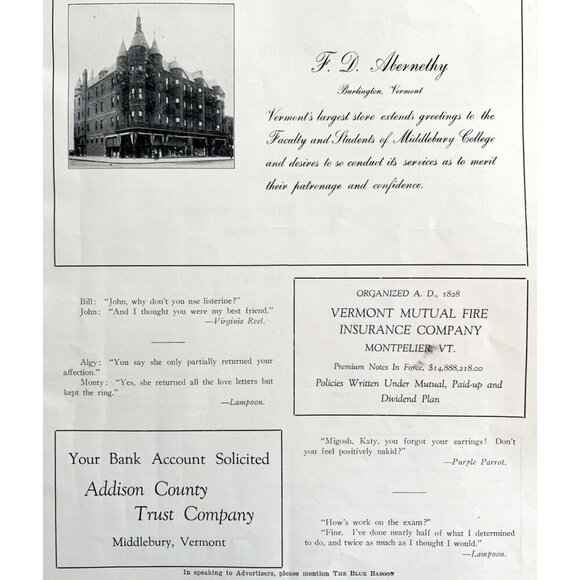 F. D. Abernethy
Burlington, Vermont
Vermont's largest store extends greetings to the
Faculty and Students of Middlebury College
and desires to so conduct its services as to merit
their patronage and confidence.
Bill: "John, why don't you use listerine?"
John: "And I thought you were my best friend."
—Virginia Reel.
Algy: "You say she only partially returned your
affection."
Monty: "Yes, she returned all the love letters but
kept the ring."
—Lampoon.
ORGANIZED A. D., 1828
VERMONT MUTUAL FIRE
INSURANCE COMPANY
MONTPELIER, VT.
Premium Notes In Force, $14,888,218.00
Policies Written Under Mutual, Paid-up and
Dividend Plan
Your Bank Account Solicited
Addison County
Trust Company
Middlebury, Vermont
"Migosh, Katy, you forgot your earrings! Don't
you feel positively nakid?"
—Purple Parrot.
"How's work on the exam?"
"Fine. I've done nearly half of what I determined
to do, and twice as much as I thought I would."
—Lampoon.
In speaking to Advertisers, please mention THE BLUE BABOON